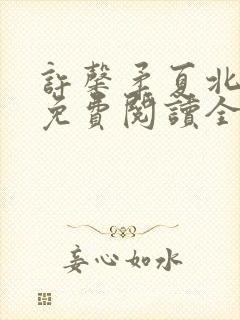 許馨矛夏北
免費閱讀全
妄心如水